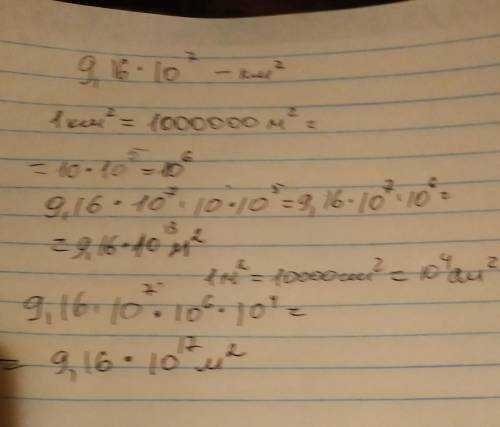 9,16 · 10⁷ – км²
1км² = 1000000 м² =
= 10 · 10⁵ = 10⁶
9,16 · 10⁷ · 10 · 10⁵ = 9,16 · 10⁷ · 10⁶ =
= 9,16 · 10¹³ м²
1м² = 10000см² = 10⁴см²
9,16 · 10⁷ · 10⁶ · 10⁴ =
= 9,16 · 10¹⁷ м²